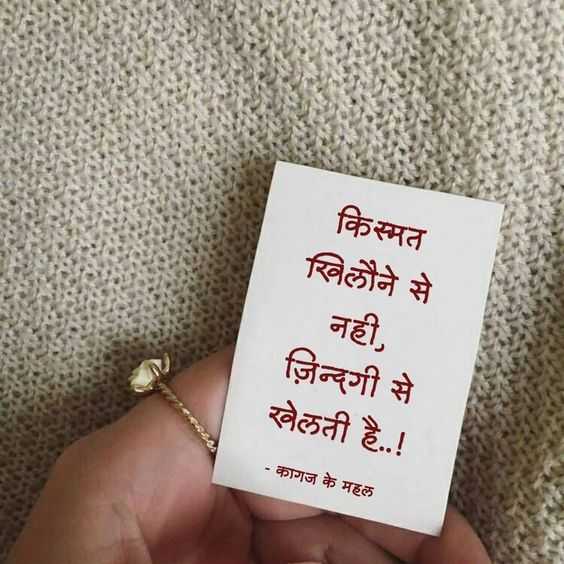 किस्मत
खिलौने से
नही,
ज़िन्दगी से
खेलती है..!
- कागज के महल